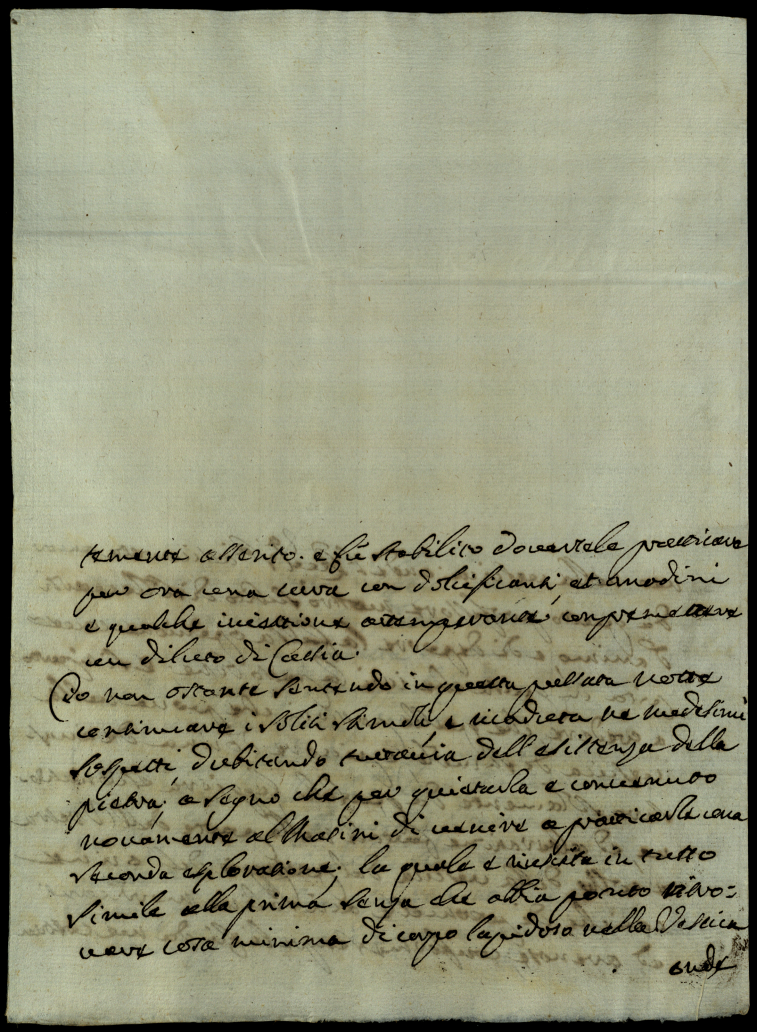 temente asserito. e fù stabilito doversele pratticare
per ora una cura con dolcificanti, et anodini
e qualche iniettione attemperante, con premettere
un diluto di Cassia.
Ciò non ostante sentendo in questa passata notte
continuare i soliti stimoli, e ricaduta ne medesimi
sospetti, dubitando tuttavia dell'esistenza della
pietra, a segno che per quietarla è convenuto
novamente al Masini di venire a pratticarle una
seconda esploratione, la quale è riuscita in tutto
simile alla prima senza che abbia potuto ritro=
vare cosa minima di corpo lapidoso nella Vessica
onde